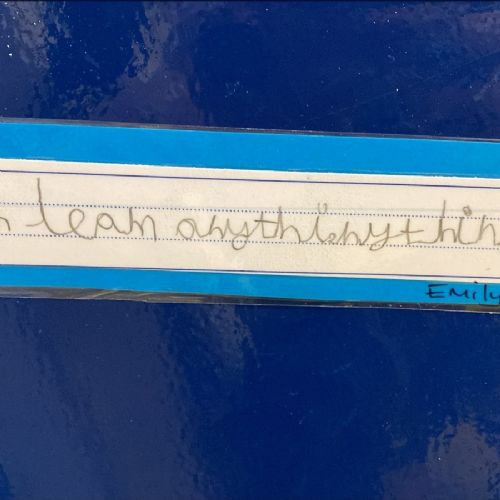 n learn anythinythin
Emily